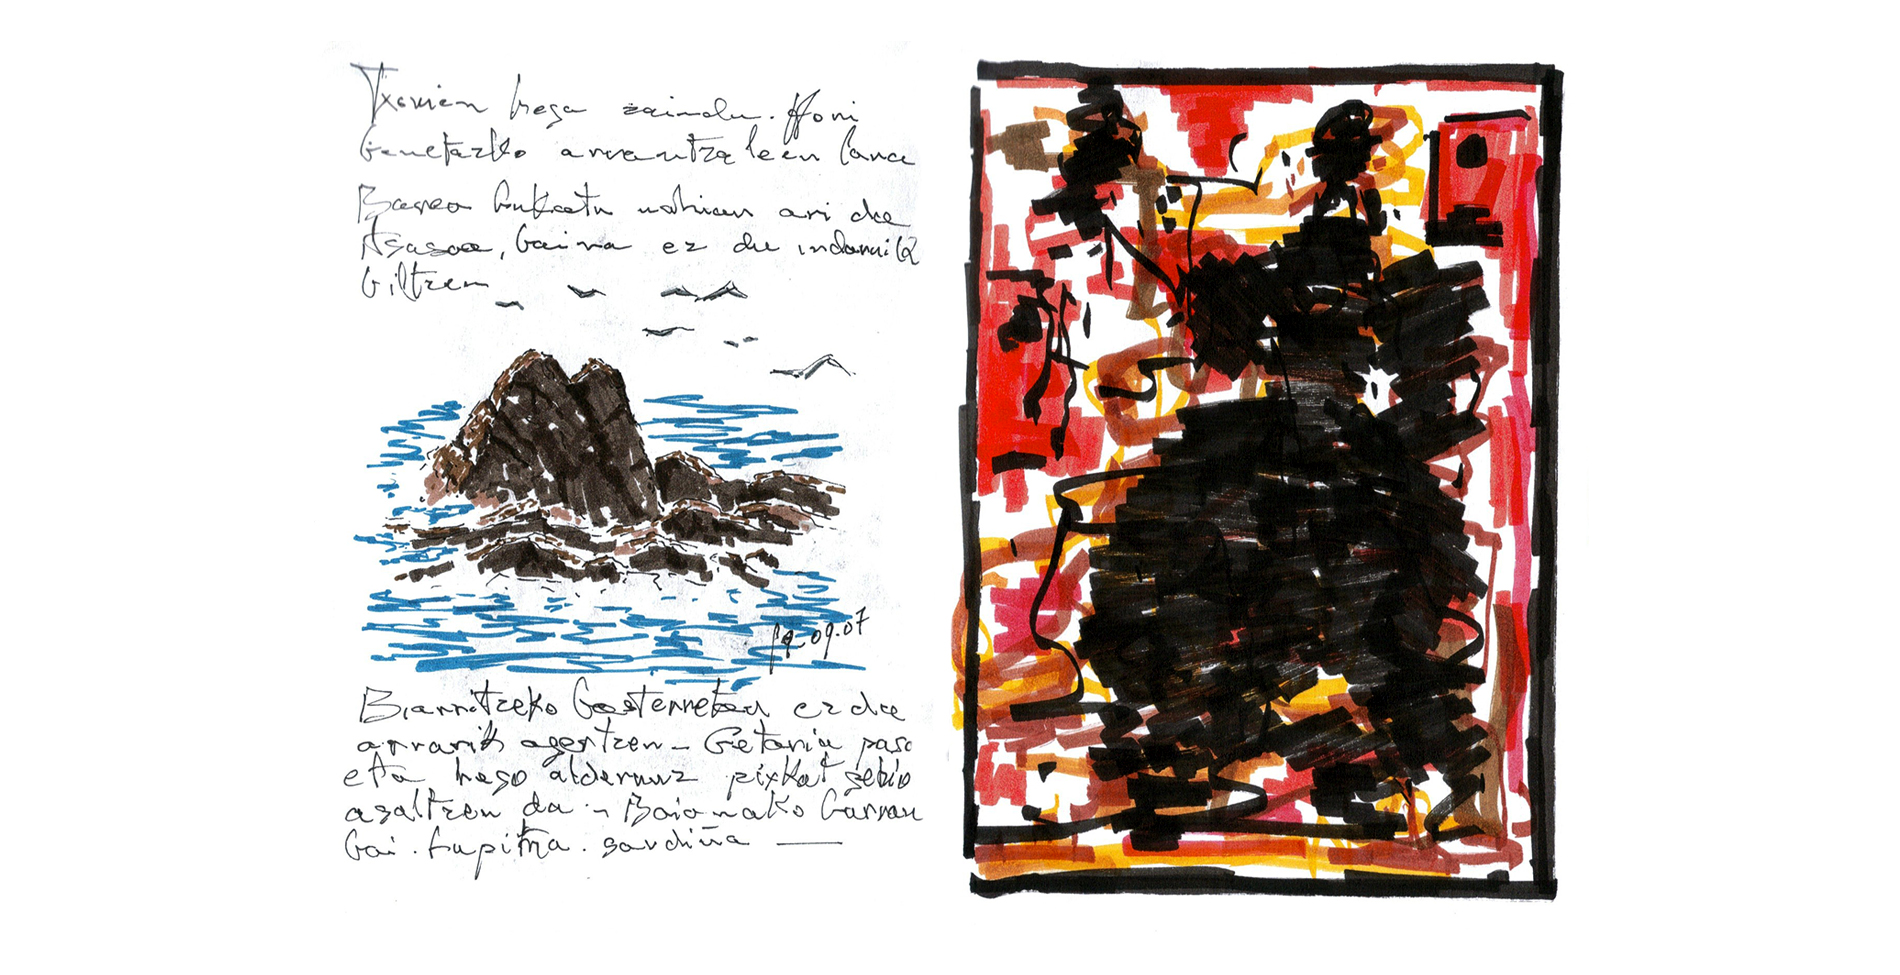 Txorien hega zaindu. Hori
benetazko arrantzaleen lana
Basea bukatu nahian ari da
Itsasoa, baina ez du indarrik
biltzen
09.07
Biarritzeko basterretan ez da
arrarik agertzen - Getaria paso
eta hego aldernuz pixkat gehio
azaltzen da - Baionako barran
bai. Lupitxa. sardiña